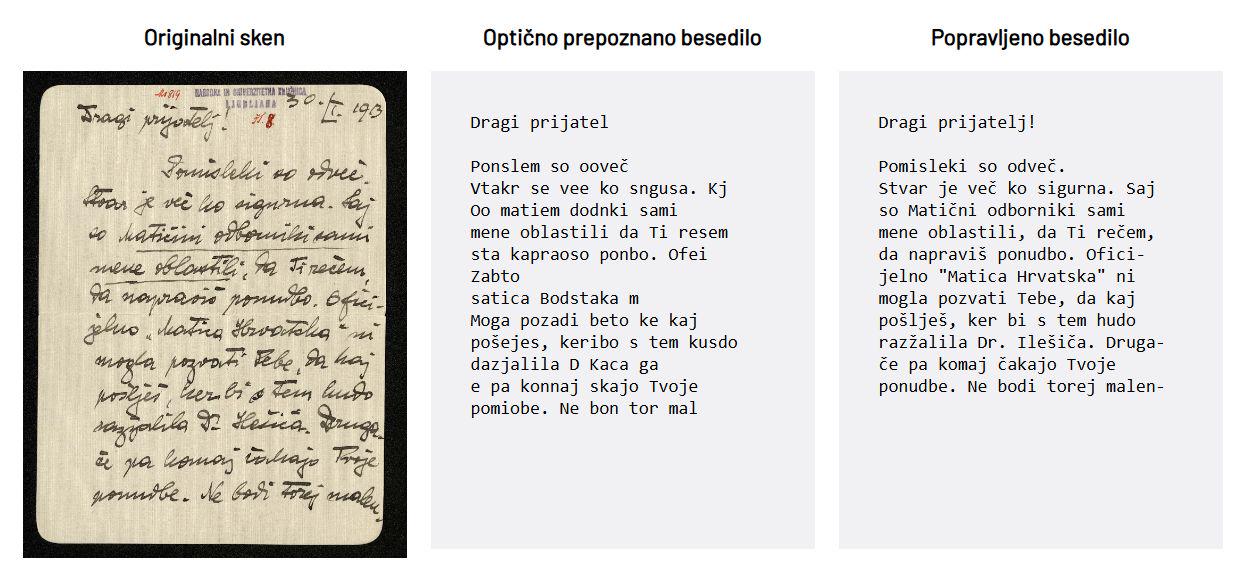 Originalni sken
21819
NARODNA IN UNIVERZITETNA KNJIŽNICA
LJUBLJANA
Dragi prijatelj!
Pomisleki so odveč.
Stvar je več ko sigurna. Saj
so Matični odborniki sami
mene oblastili, da Ti rečem,
da napraviš ponudbo. Ofici-
jelno „Matica Hrvatska" ni
mogla pozvati Tebe, da kaj
pošlješ, ker bi s tem hudo
razžalila Dr. Ilešiča. Druga-
če pa komaj čakajo Tvoje
ponudbe. Ne bodi torej malen-
Optično prepoznano besedilo
Dragi prijatel
Ponslem so ooveč
Vtakr se vee ko sngusa. Kj
Oo matiem dodnki sami
mene oblastili da Ti resem
sta kapraoso ponbo. Ofei
Zabto
satica Bodstaka m
Moga pozadi beto ke kaj
pošejes, keribo s tem kusdo
dazjalila D Kaca ga
e pa konnaj skajo Tvoje
pomiobe. Ne bon tor mal
Popravljeno besedilo
Dragi prijatelj!
Pomisleki so odveč.
Stvar je več ko sigurna. Saj
so Matični odborniki sami
mene oblastili, da Ti rečem,
da napraviš ponudbo. Ofici-
jelno "Matica Hrvatska" ni
mogla pozvati Tebe, da kaj
pošlješ, ker bi s tem hudo
razžalila Dr. Ilešiča. Druga-
če pa komaj čakajo Tvoje
ponudbe. Ne bodi torej malen-